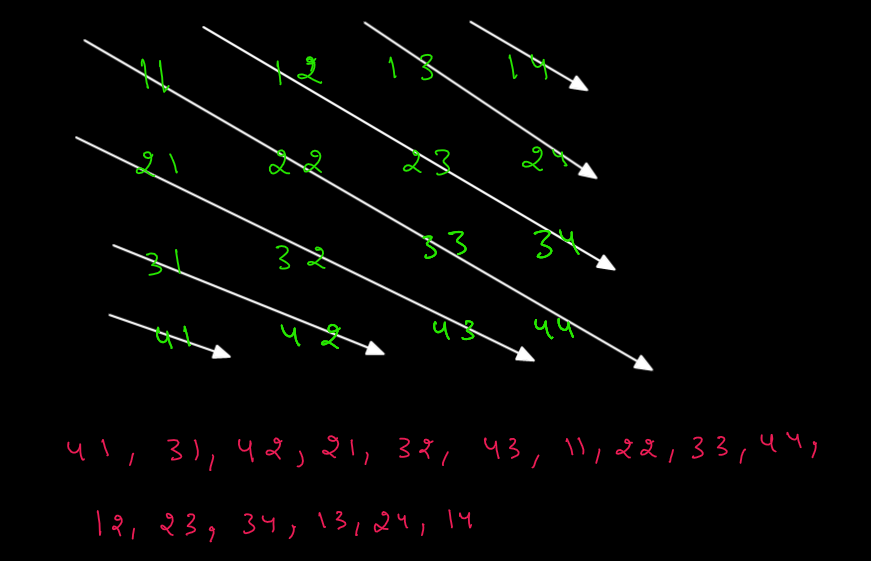 11 12 13 14
21 22 23 24
31 32 33 34
41 42 43 44
41, 31, 42, 21, 32, 43, 11, 22, 33, 44,
12, 23, 34, 13, 24, 14